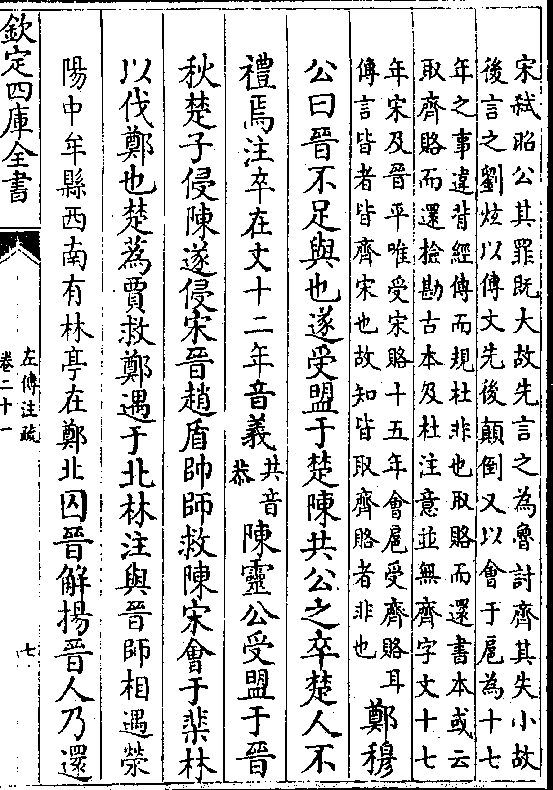 宋弑昭公其罪既大故先言之為魯討齊其失小故
後言之劉炫以傳文先後顛倒又以會于扈為十七
年之事違背經傳而規杜非也取賂而還書本或云
取齊賂而還檢勘古本及杜注意並無齊字文十七
年宋及晉平唯受宋賂十五年會扈受齊賂耳
傳言皆者皆齊宋也故知皆取齊賂者非也
鄭穆
公曰晉不足與也遂受盟于楚陳共公之卒楚人不
禮焉注卒在文十二年音義共音恭陳靈公受盟于晉
秋楚子侵陳遂侵宋晉趙盾帥師救陳宋會于棐林
以伐鄭也楚蒍賈救鄭遇于北林注與晉師相遇滎
陽中牟縣西南有林亭在鄭北囚晉解揚晉人乃還
欽定四庫全書
左傳注疏
卷二十一
七